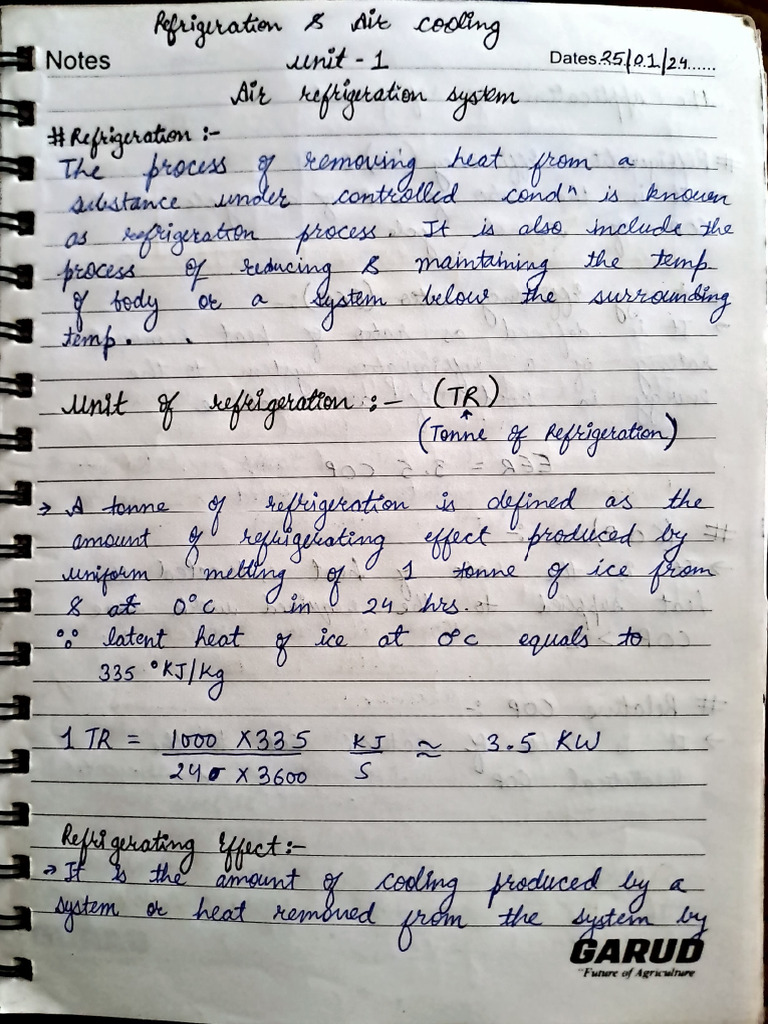 Refrigeration & Air cooling
Notes unit - 1 Dates.25/01/24......
Air refrigeration system
# Refrigeration :-
The process of removing heat from a
substance under controlled condⁿ is known
as refrigeration process. It is also include the
process of reducing & maintaining the temp
of body or a system below the surrounding
temp.
Unit of refrigeration :- (TR)
(Tonne of Refrigeration)
→ A tonne of refrigeration is defined as the
amount of refrigerating effect produced by
uniform melting of 1 tonne of ice from
& at 0°C in 24 hrs.
∵ latent heat of ice at 0°C equals to
335 °KJ/Kg
1 TR = 1000 X 335 KJ ≈ 3.5 KW
24 X 3600 S
Refrigerating Effect :-
→ It is the amount of cooling produced by a
system or heat removed from the system by
GARUD
"Future of Agriculture